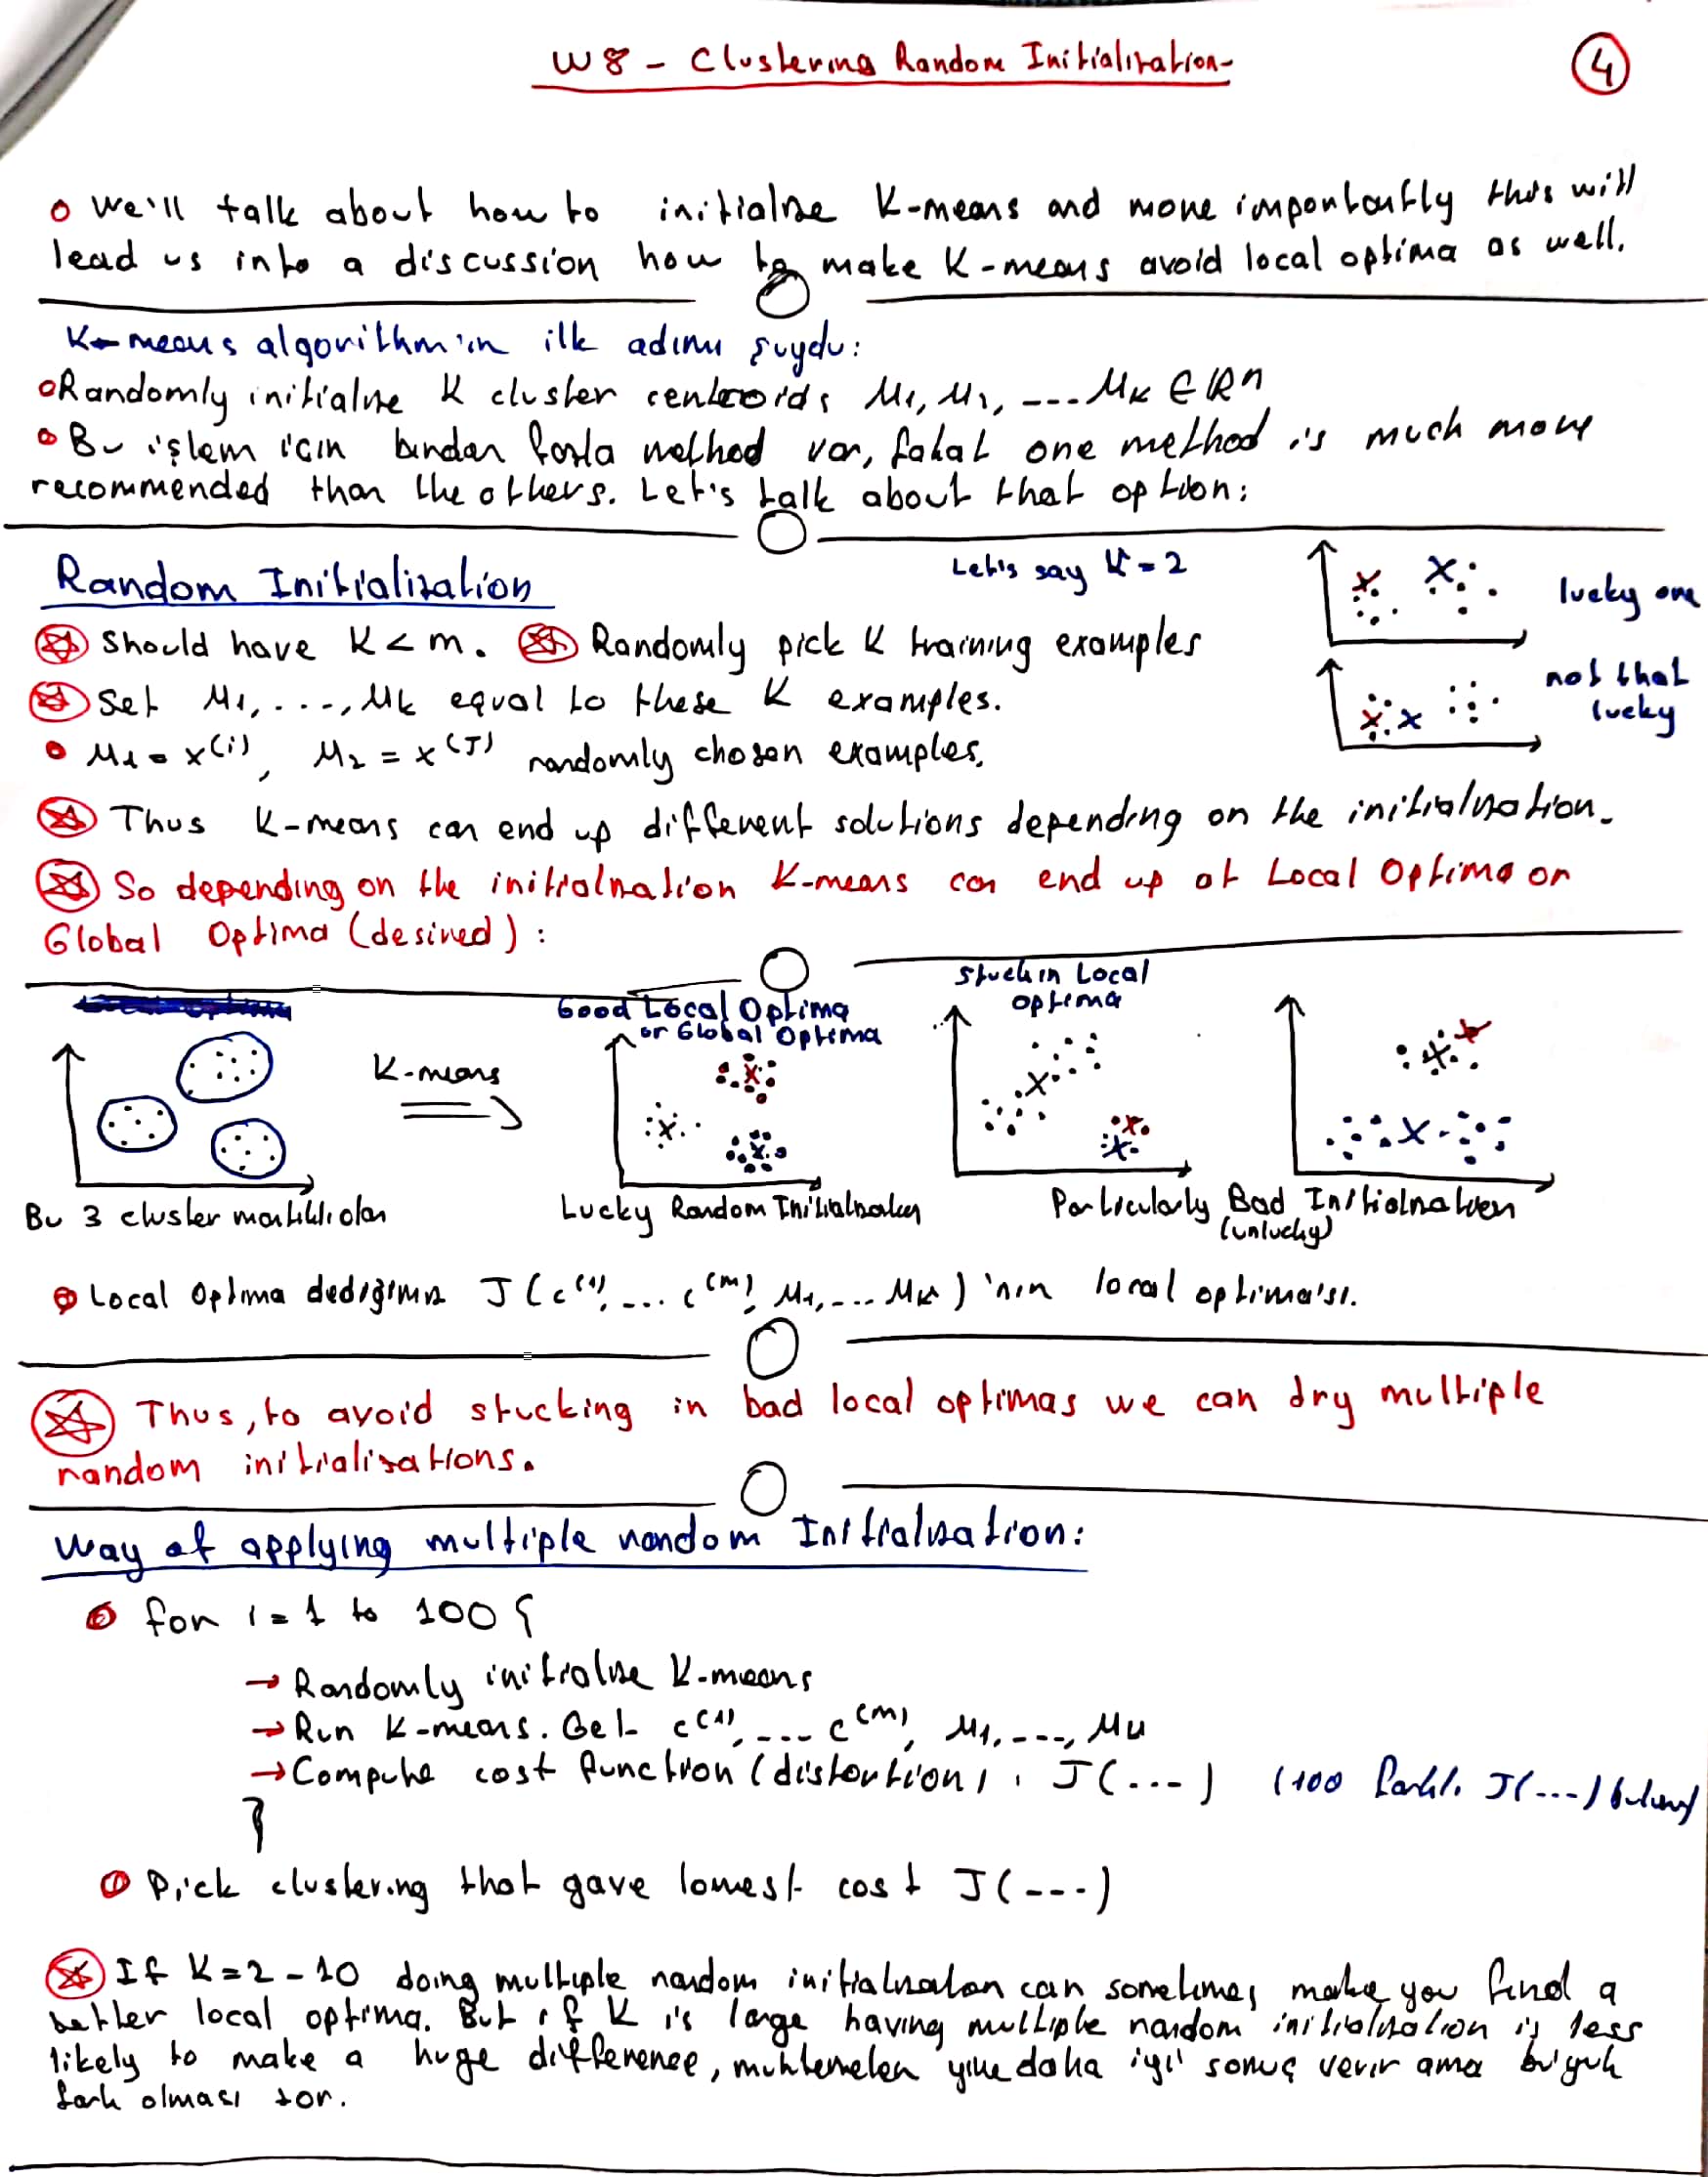 W8 - Clustering Random Initialization-
4
o We'll talk about how to initialize K-means and more importantly this will
lead us into a discussion how to make K-means avoid local optima as well.
K-means algorithm'ın ilk adımı şuydu:
o Randomly initialize K cluster centroids μ1, μ2, ---- μK ∈ ℝn
o Bu işlem için birden fazla method var, fakat one method is much more
recommended than the others. Let's talk about that option:
Random Initialization
Let's say K=2
lucky one
Should have K < m. Randomly pick K training examples
Set μ1, ...., μk equal to these K examples.
not that
lucky
• μ1 = x(i), μ2 = x(J) randomly chosen examples.
Thus K-means can end up different solutions depending on the initialization.
So depending on the initialization K-means can end up at Local Optima or
Global Optima (desired) :
Good Local Optima
or Global Optima
Stuck in Local
optima
K-means
Bu 3 cluster mantıklı olan
Lucky Random Initialization
Particularly Bad Initialization
(unlucky)
Local Optima dediğimiz J(c(1), ... c(m), μ1, ... μK) 'nın local optima'sı.
Thus, to avoid stucking in bad local optimas we can dry multiple
random initializations.
Way of applying multiple random Initialization:
for i = 1 to 100 {
→ Randomly initialize K-means
→ Run K-means. Get c(1), --- c(m), μ1, ---, μK
→ Compute cost function (distortion) : J(...) (100 farklı J(...)
}
Pick clustering that gave lowest cost J(---)
If K=2-10 doing multiple random initialization can sometimes make you find a
better local optima. But if K is large having multiple random initialization is less
likely to make a huge difference, muhtemelen yine daha iyi sonuç verir ama büyük
fark olması zor.